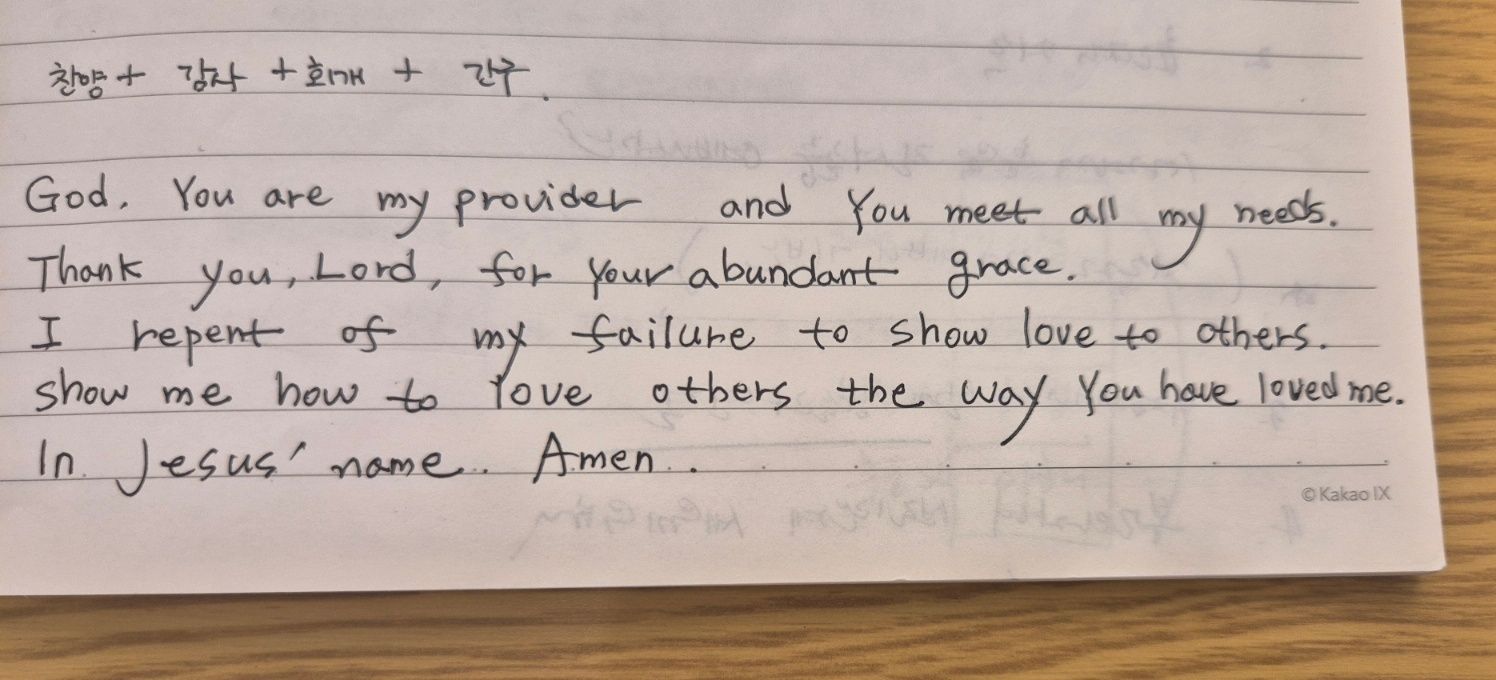 찬양 + 감사 + 회개 + 간구.
God. You are my provider and You meet all my needs.
Thank you, Lord, for Your abundant grace.
I repent of my failure to show love to others.
show me how to love others the way You have loved me.
In Jesus' name.. Amen..
© Kakao IX